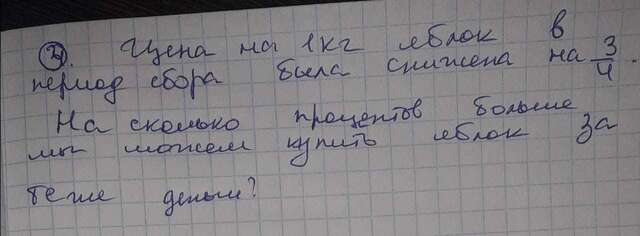 2). Цена на 1кг яблок в
период сбора была снижена на 3/4.
На сколько процентов больше
мы можем купить яблок за
те же деньги?